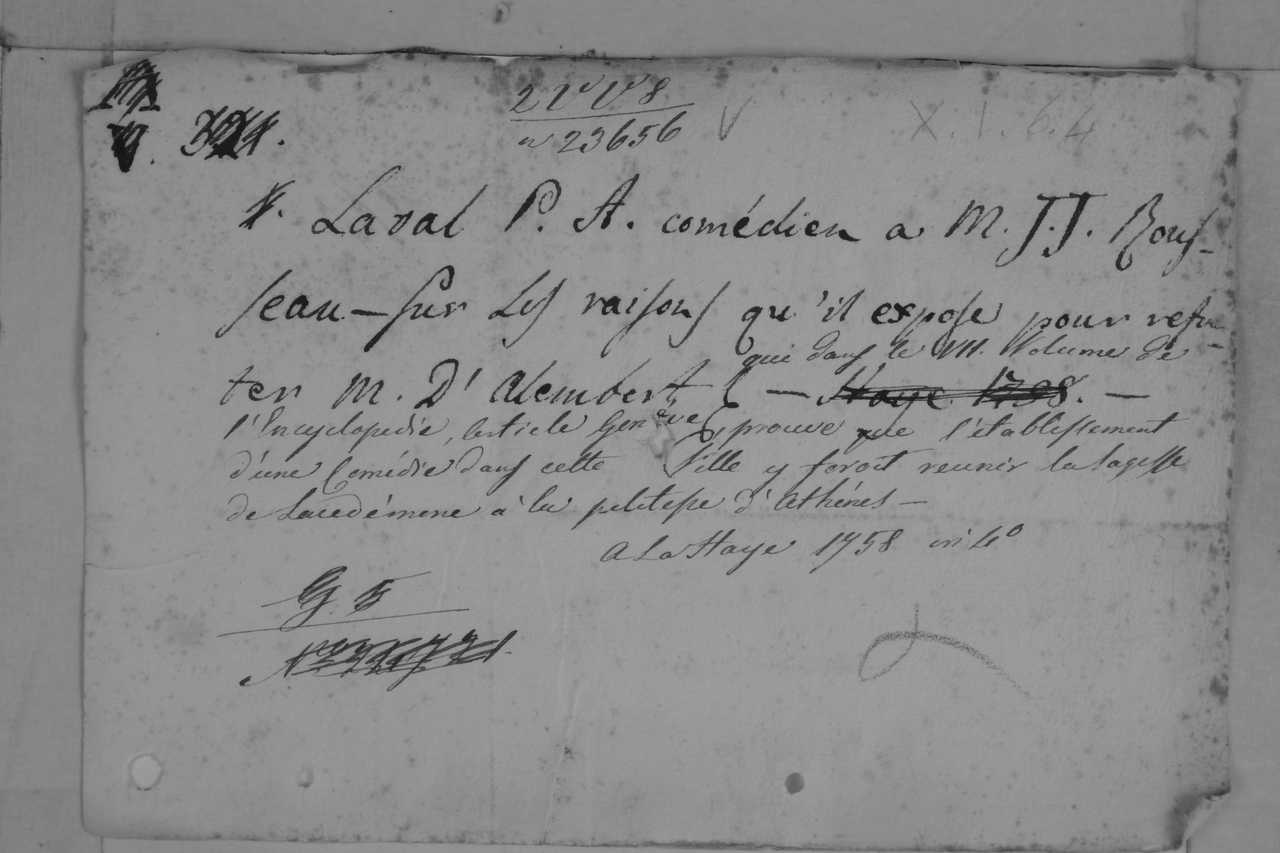 2 V v 8
n 23656
V
X.1.6.4
Laval P. A. comédien a M. J.J. Rous-
seau — sur les raisons qu'il expose pour refu-
ter M. D'Alembert
qui dans le VII. Volume de
l'Encyclopedie, article Genève, prouve que l'établissement
d'une Comédie dans cette Ville y feroit reunir la sagesse
de Lacedémone à la politesse d'Athénes —
A La Haye 1758 in 4°
G. 5